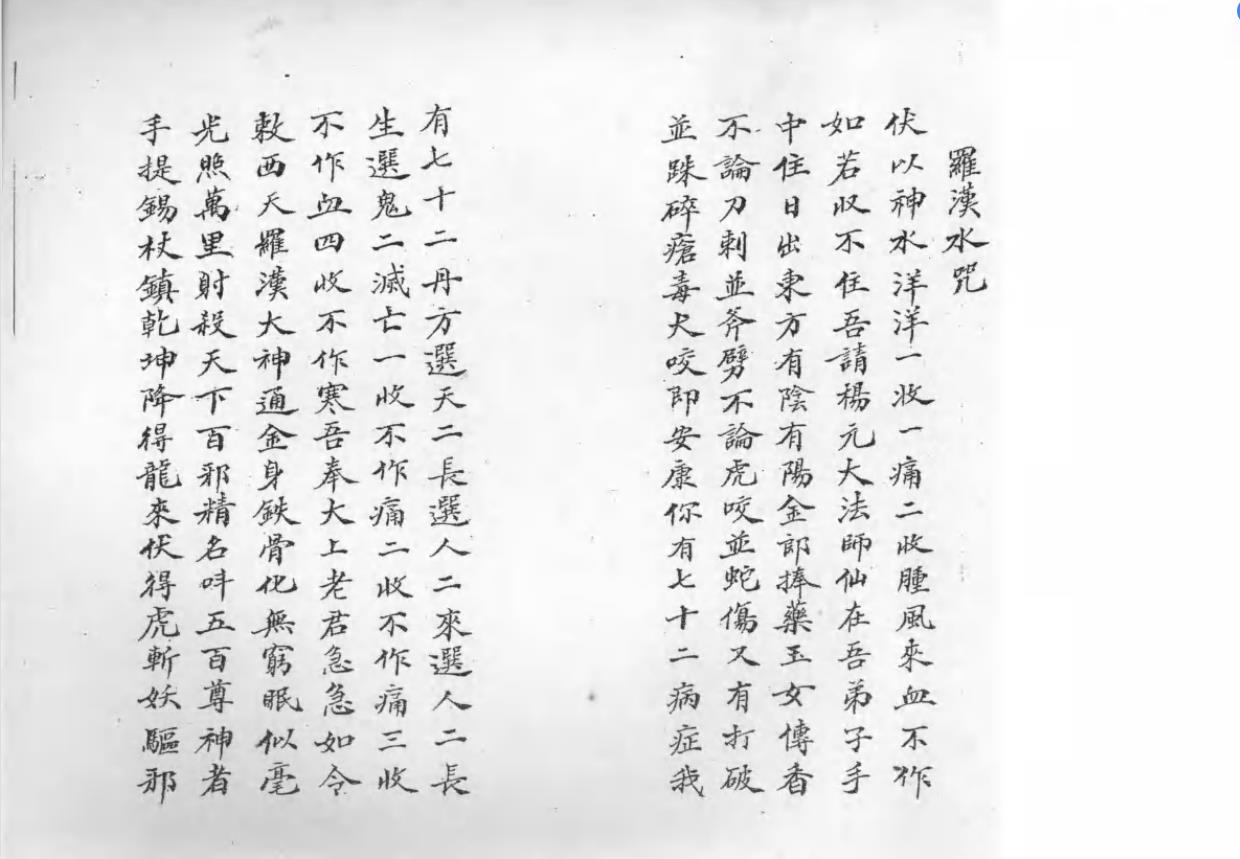 羅漢水咒
伏以神水洋洋一收一痛二收腫風來血不作
如若收不住吾請楊元大法師仙在吾弟子手
中住日出東方有陰有陽金郎捧藥玉女傳香
不論刀刺並斧劈不論虎咬並蛇傷又有打破
並跌碎瘡毒犬咬即安康你有七十二病症我
有七十二丹方選天二長選人二來選人二長
生選鬼二滅亡一收不作痛二收不作痛三收
不作血四收不作寒吾奉大上老君急急如令
敕西天羅漢大神通金身鉄骨化無窮眠似毫
光照萬里財殺天下百邪精名呌五百尊神者
手提錫杖鎮乾坤降得龍來伏得虎斬妖驅邪